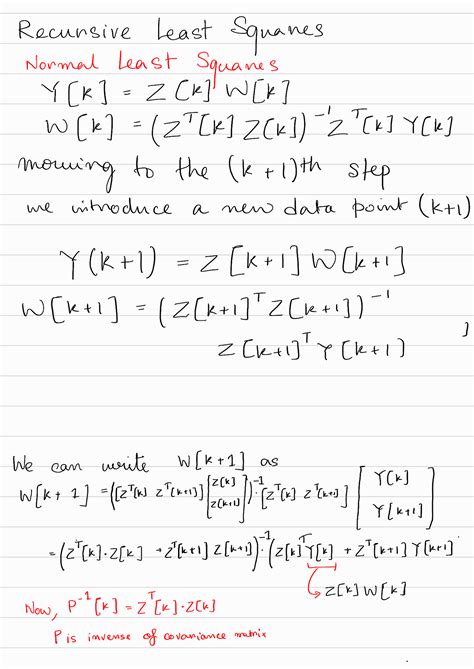 Recursive Least Squares
Normal Least Squares
Y[k] = Z[k] W[k]
W[k] = (Z^T[k] Z[k])^-1 Z^T[k] Y[k]
moving to the (k+1)th step
we introduce a new data point (k+1)
Y(k+1) = Z[k+1] W[k+1]
W[k+1] = (Z[k+1]^T Z[k+1])^-1
Z[k+1]^T Y[k+1)
]
We can write W[k+1] as
W[k+1] = ([Z^T[k] Z^T[k+1]] [Z[k] Z[k+1]])^-1 · [Z^T[k] Z^T[k+1]] [Y[k] Y[k+1]]
= (Z^T[k]·Z[k] + Z^T[k+1] Z[k+1])^-1 · (Z[k]^T Y[k] + Z^T[k+1] Y[k+1])
Z[k] W[k]
Now, P^-1[k] = Z^T[k]·Z[k]
P is inverse of covariance matrix